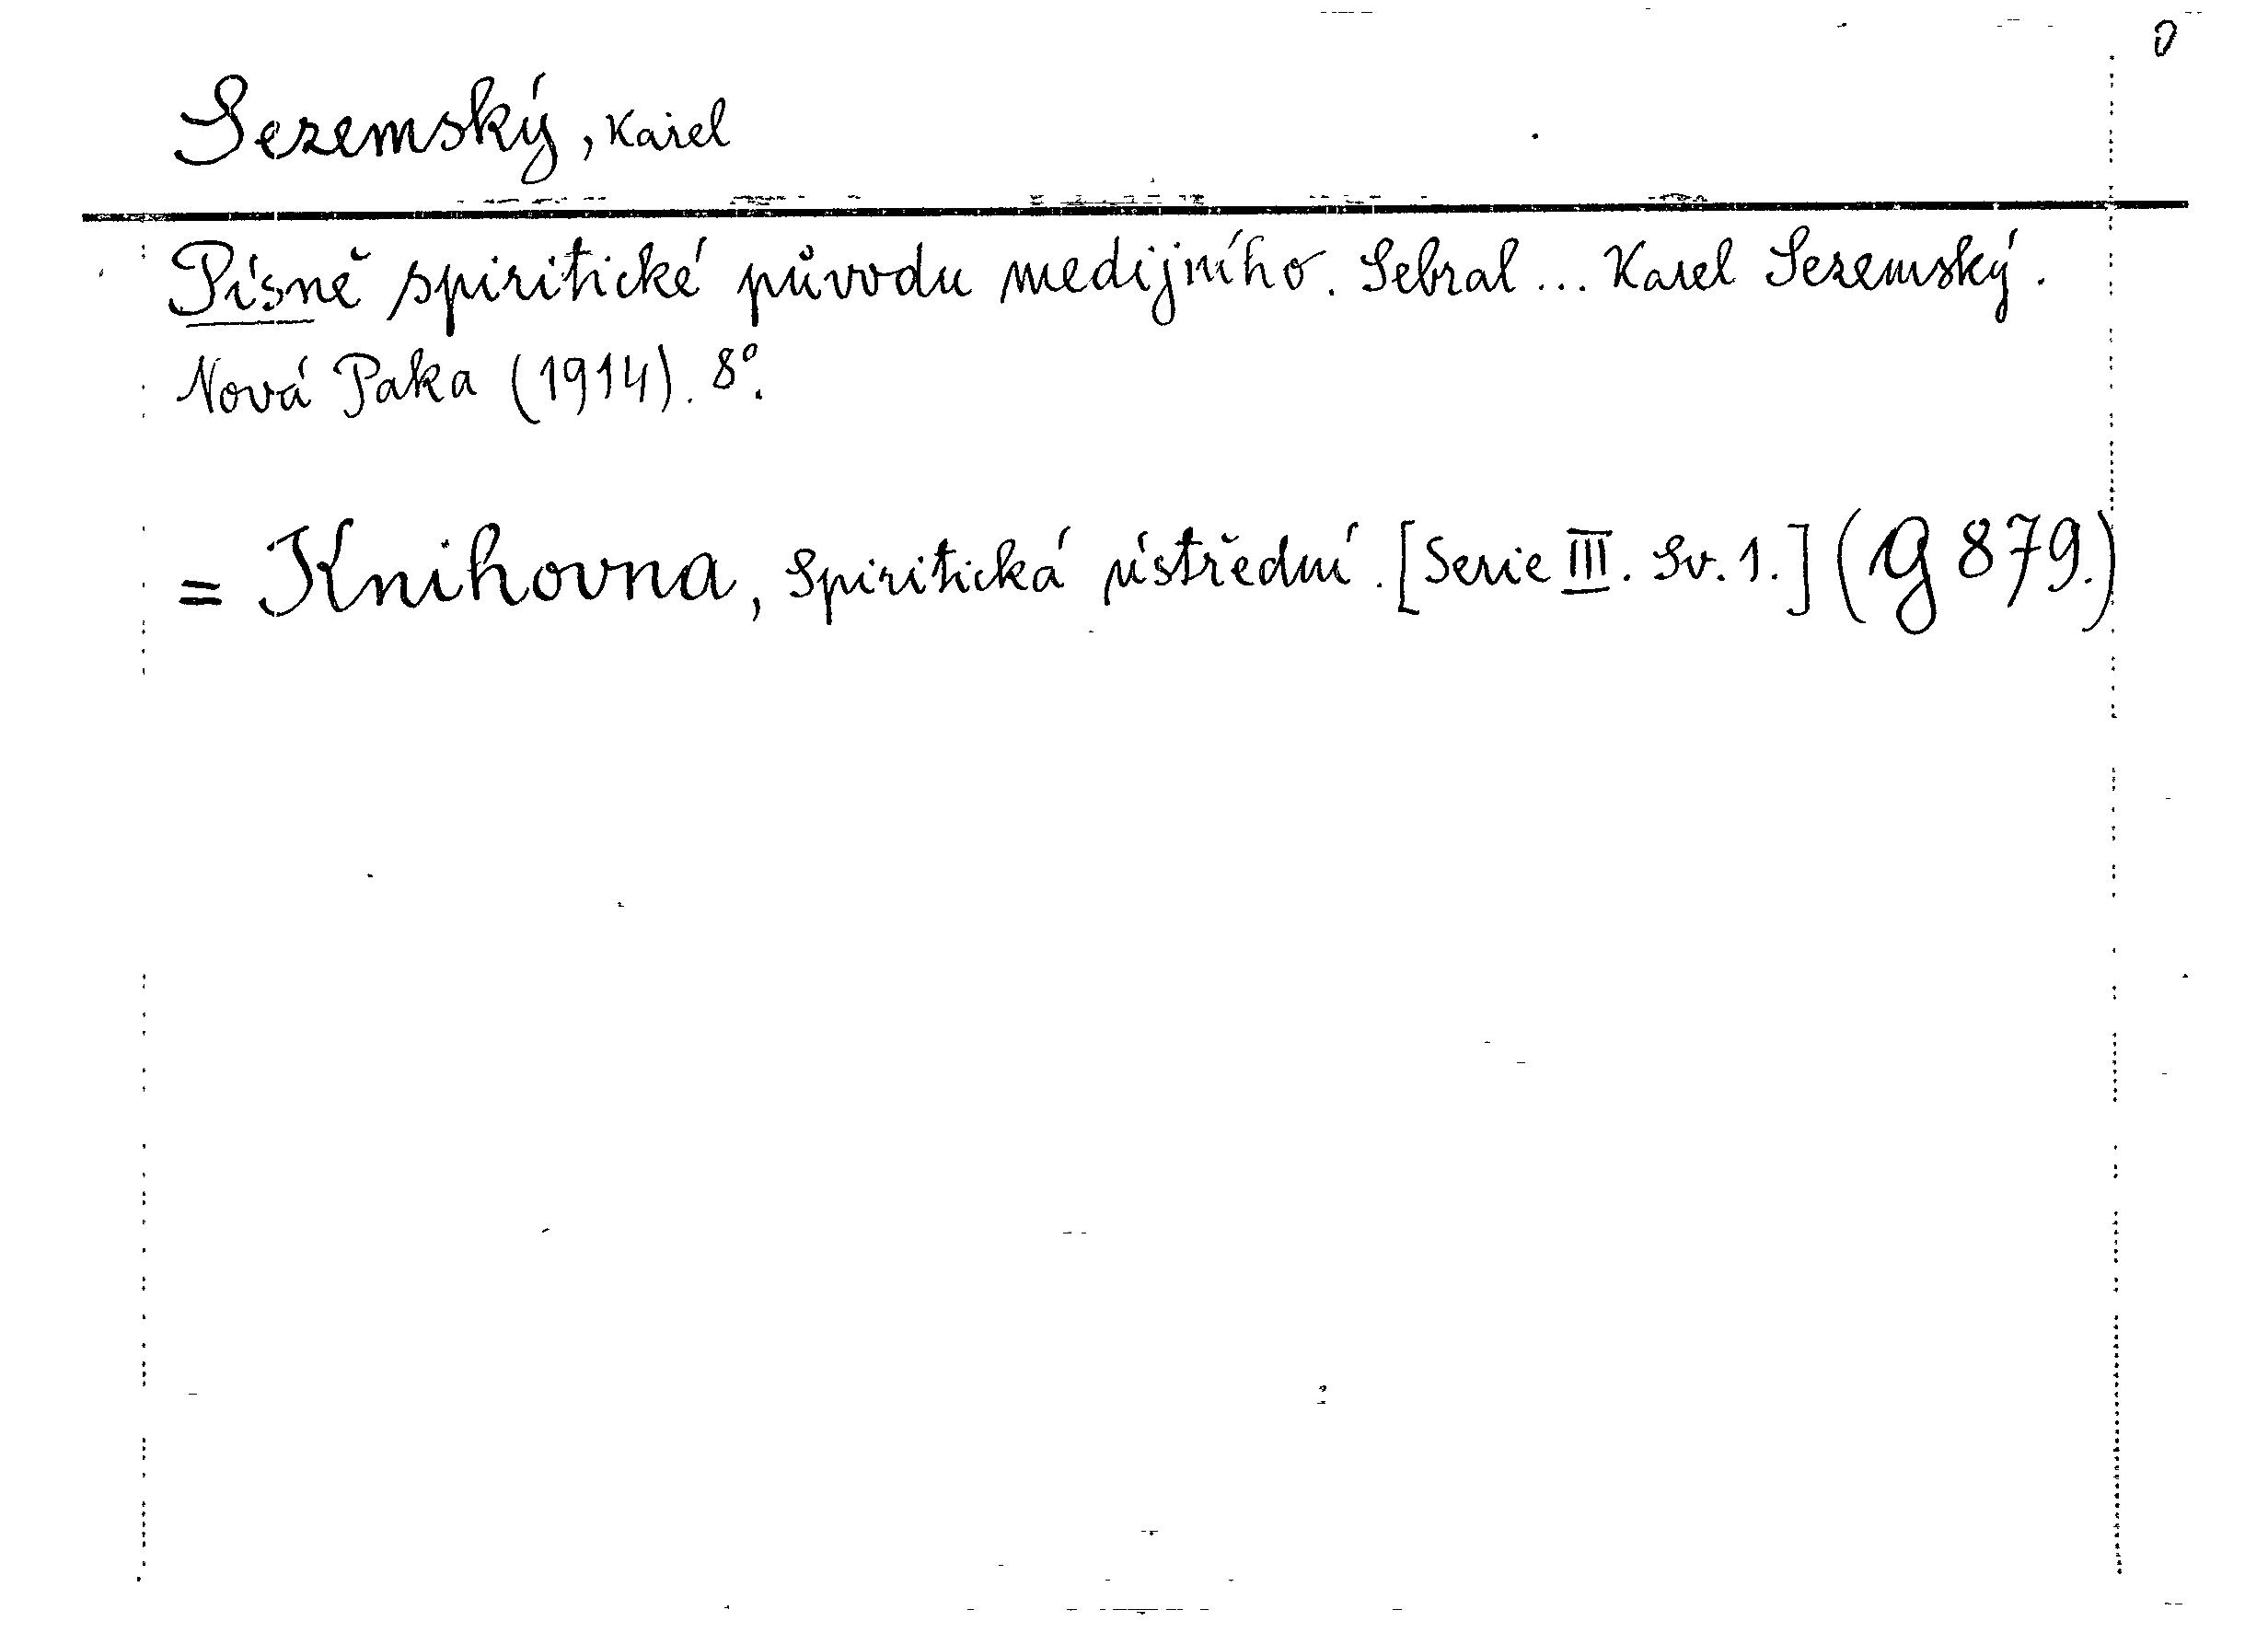 0
Sezemský, Karel
Písně spiritické původu medijního. Sebral ... Karel Sezemský.
Nová Paka (1914). 8°.
= Knihovna, Spiritická ústřední. [Serie III. Sv. 1.] (G 879.)